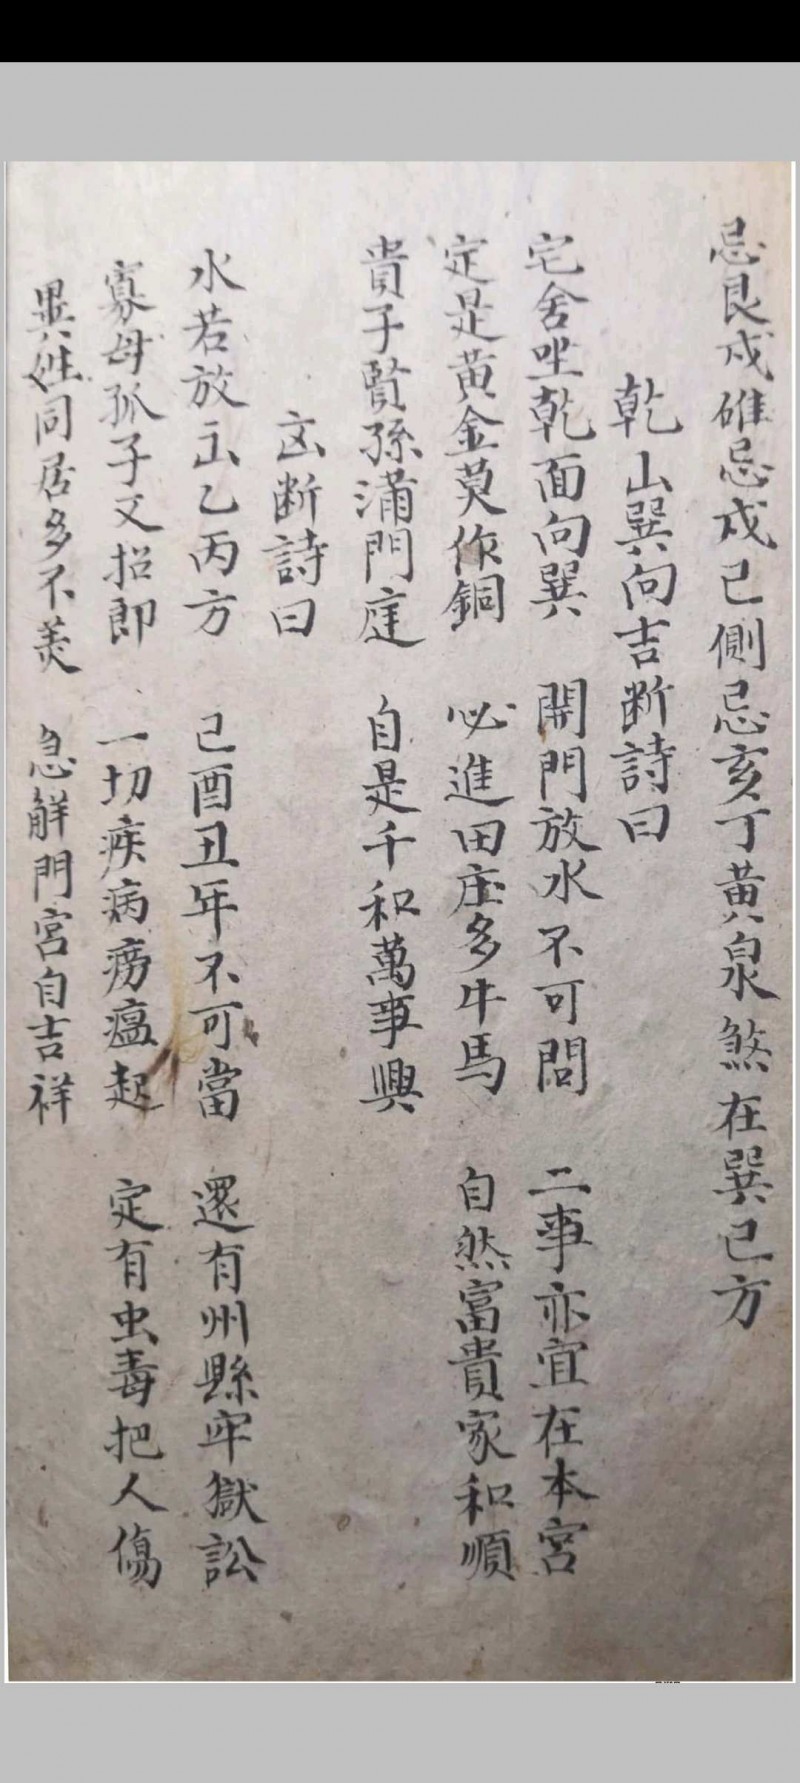 忌艮戌碓忌戌己側忌亥丁黄泉煞在巽巳方
乾山巽向吉断詩曰
宅舍坐乾面向巽 開門放水不可問 二事亦宜在本宮
定是黄金莫作銅 必進田庄多牛馬 自然富貴家和順
貴子賢孫滿門庭 自是千和萬事興
凶断詩曰
水若放出乙丙方 己酉丑年不可當 還有州縣牢獄訟
寡母孤子又招郎 一切疾病癆瘟起 定有虫毒把人傷
異姓同居多不美 急解門宮自吉祥